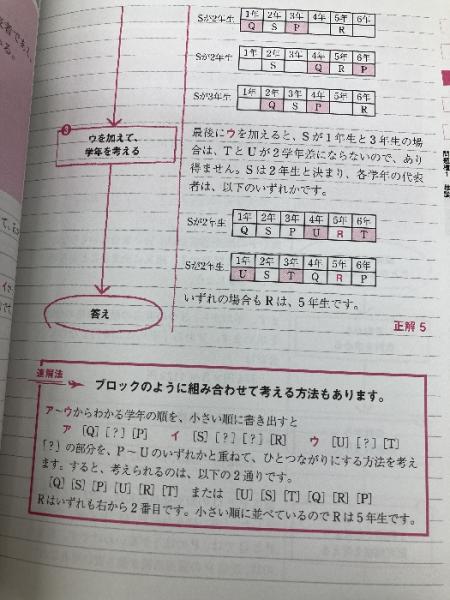 Sが2年生
1年 2年 3年 4年 5年 6年
Q S P R
Sが2年生
1年 2年 3年 4年 5年 6年
S Q R P
Sが3年生
1年 2年 3年 4年 5年 6年
Q S P
3
ウを加えて、
学年を考える
最後にウを加えると、Sが1年生と3年生の場
合は、TとUが2学年差にならないので、あり
得ません。Sは2年生と決まり、各学年の代表
者は、以下のいずれかです。
Sが2年生
1年 2年 3年 4年 5年 6年
Q S P U R T
Sが2年生
1年 2年 3年 4年 5年 6年
U S T Q R P
いずれの場合もRは、5年生です。
答え
正解 5
速解法
ブロックのように組み合わせて考える方法もあります。
ア～ウからわかる学年の順を、小さい順に書き出すと
ア [Q][?][P] イ [S][?][?][R] ウ [U][?][T]
「?」の部分を、P～Uのいずれかと重ねて、ひとつながりにする方法を考え
ます。すると、考えられるのは、以下の2通りです。
[Q][S][P][U][R][T] または [U][S][T][Q][R][P]
Rはいずれも右から2番目です。小さい順に並べているのでRは5年生です。